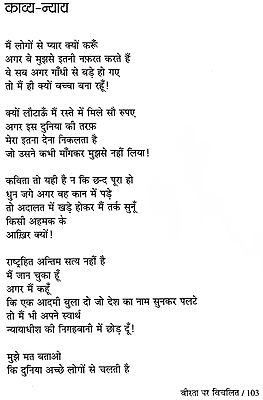 काव्य-न्याय
मैं लोगों से प्यार क्यों करूँ
अगर वे मुझसे इतनी नफ़रत करते हैं
वे सब अगर गाँधी से बड़े हो गए
तो मैं ही क्यों बच्चा बना रहूँ!
क्यों लौटाऊँ मैं रस्ते में मिले सौ रुपए
अगर इस दुनिया की तरफ़
मेरा इतना देना निकलता है
जो उसने कभी माँगकर मुझसे नहीं लिया!
कविता तो यही है न कि छन्द पूरा हो
धुन जगे अगर वह कान में पड़े
तो अदालत में खड़े होकर मैं तर्क सुनूँ
किसी अहमक के
आख़िर क्यों!
राष्ट्रहित अन्तिम सत्य नहीं है
मैं जान चुका हूँ
अगर मैं कहूँ
कि एक आदमी बुला दो जो देश का नाम सुनकर पलटे
तो मैं भी अपने स्वार्थ
न्यायाधीश की निगहबानी में छोड़ दूँ!
मुझे मत बताओ
कि दुनिया अच्छे लोगों से चलती है
वीरता पर विचलित / 103